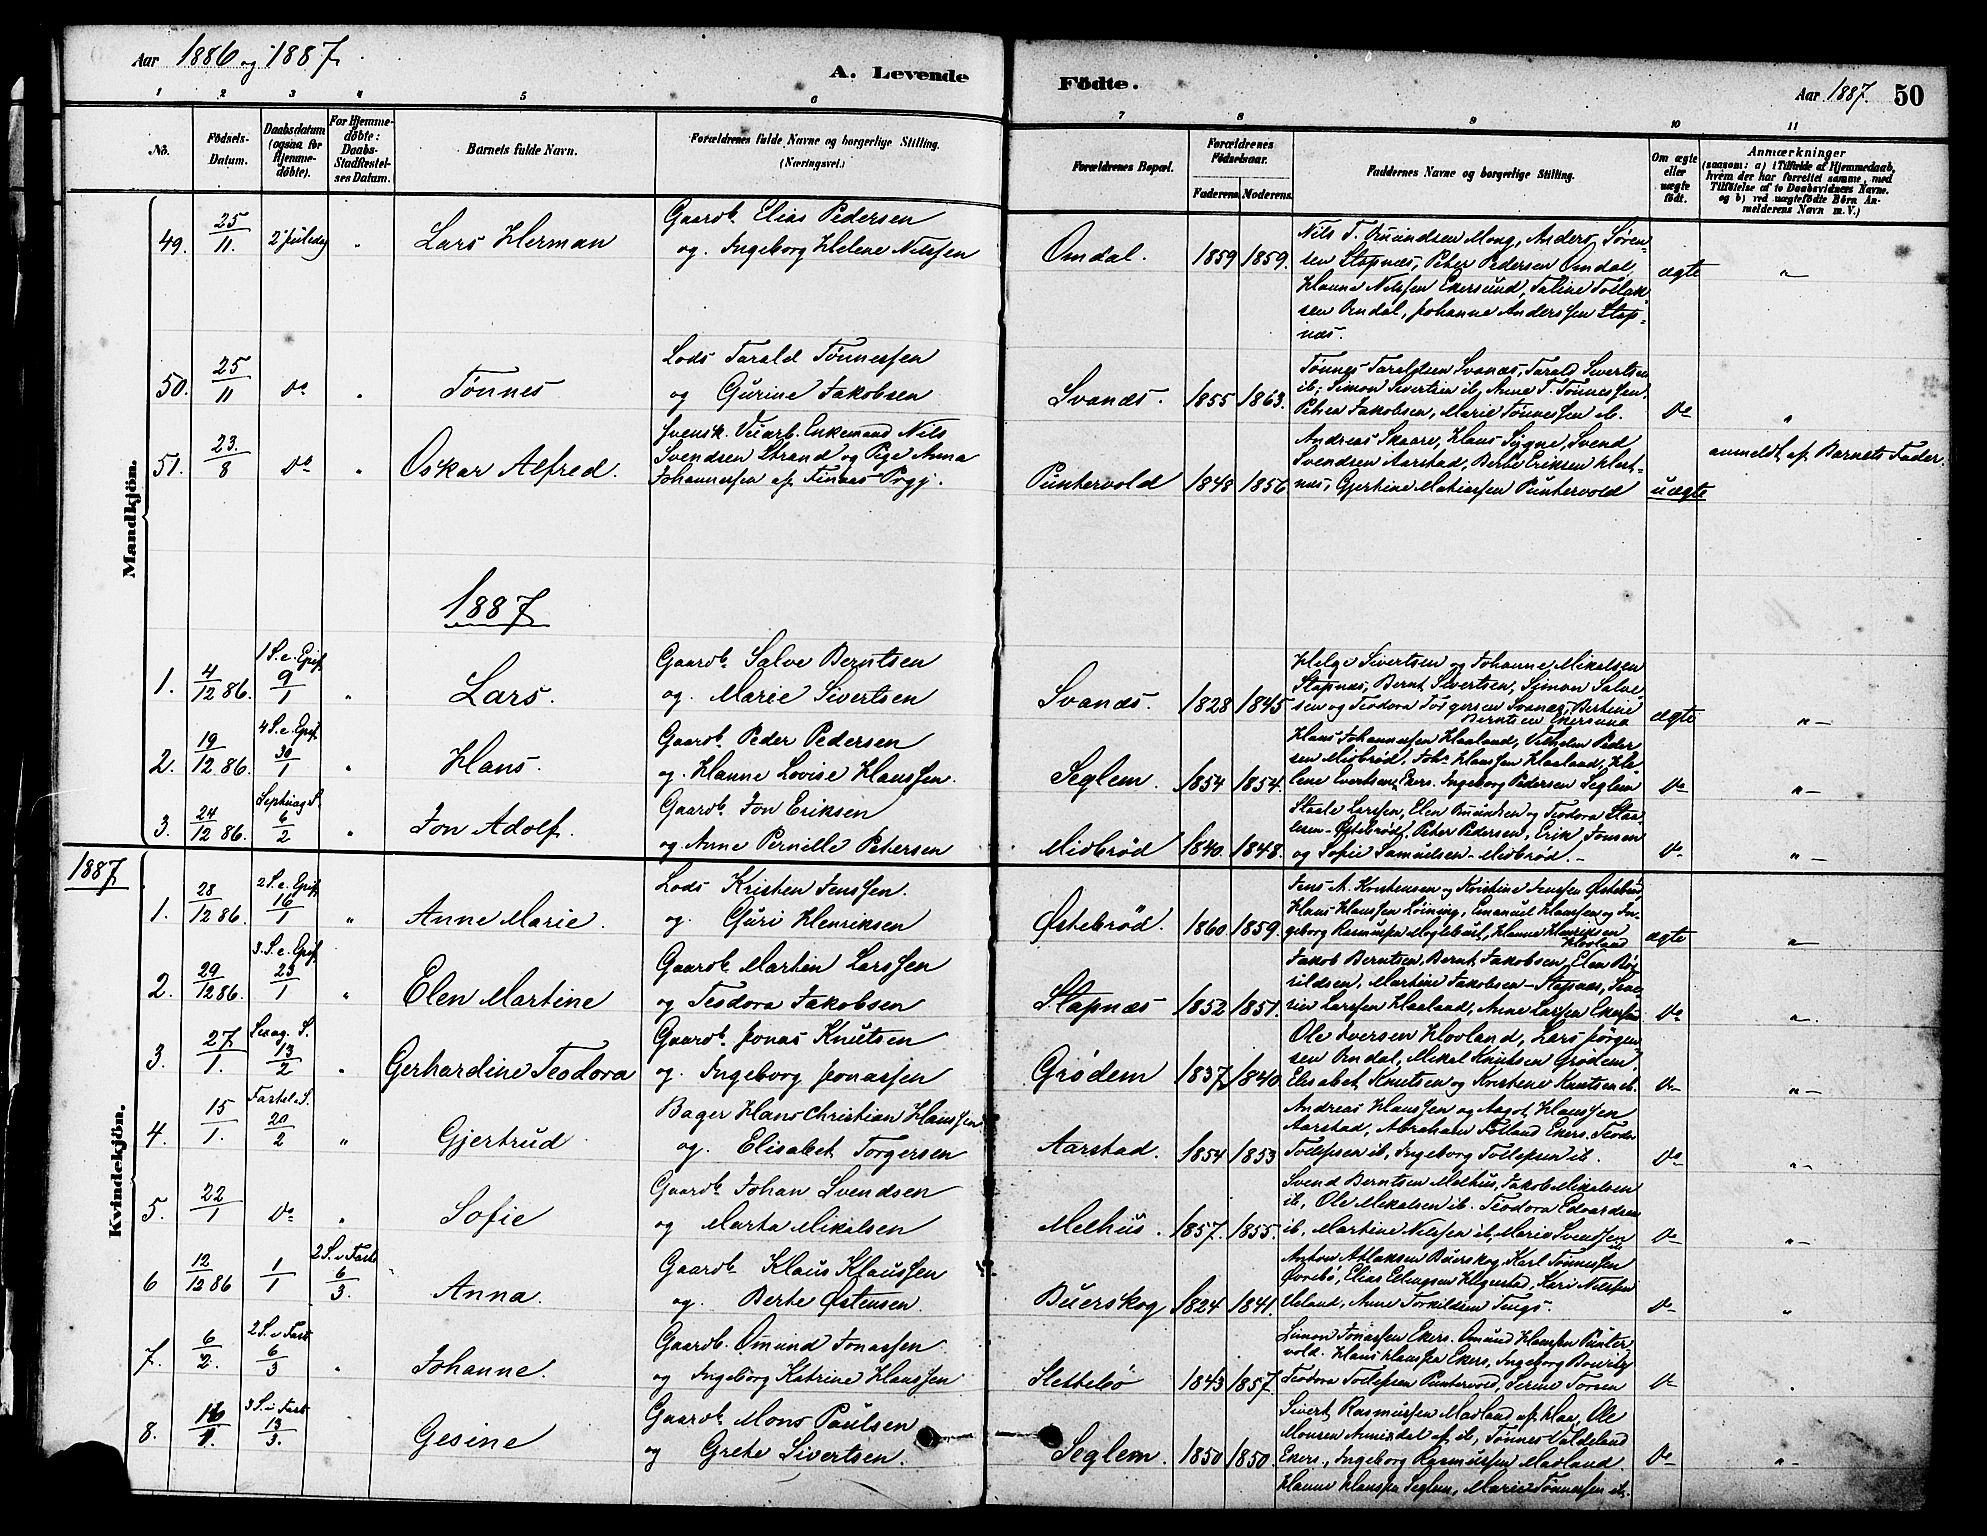 Aar 1886 og 1887.
A. Levende Födte.
Aar 1887. 50
1 2 3 4 5 6 7 8 9 10 11
No. Födsels-Datum. Daabsdatum (ogsaa for Hjemmedöbte). For Hjemmedöbte: Daabs-Stadfæstelses Datum. Barnets fulde Navn. Forældrenes fulde Navne og borgerlige Stilling. (Næringsvei.) Forældrenes Bopæl. Forældrenes Födselsaar. Faderens. Moderens. Faddernes Navne og borgerlige Stilling. Om ægte eller uægte födt. Anmærkninger
(saasom: a) i Tilfælde af Hjemmedaab, hvem der har forrettet samme, med Tilföielse af to Daabsvidners Navne. og b) ved uægtefödte Börn Anmelderens Navn m. V.)
Mandkjön.
49. 25/11. 2' juledag " Lars Herman Gaardb. Elias Pedersen
og Ingeborg Helene Nilssen Omdal. 1859 1859.
Nils T. Omundsen Mong, Anders Søren-
sen Stapnæs, Peter Pedersen Omdal,
Hanne Nilssen Ekersund, Taline Tollak
sen Omdal, Johanne Anderssen Stap-
næs. ægte "
50. 25/11 do " Tønnes Lods Tarald Tønnessen
og Gurine Jakobsen Svanæs. 1855 1863.
Tønnes Taraldsen Svanæs, Tarald Sivertsen
ib; Simon Sivertsen ib, Anne T. Tønnessen,
Petrea Jakobsen, Marie Tønnessen ib. do "
51. 23./8 do " Oskar Alfred. Svensk. Veiarb. Enkemand Nils
Svendsen Strand og Pige Anna
Johannessen af Finaas Prgj. Puntervold 1848 1856
Andreas Skaare, Hans Sygne, Svend
Svendsen Aarstad, Berte Eriksen Host-
næs, Gjertine Matiassen Puntervold uægte anmeldt af Barnets Fader.
1887
1. 4/12 86. 1 S. e. Epif. 9/1 " Lars. Gaardb. Salve Berntsen
og Marie Sivertsen Svanæs. 1828 1845
Helge Sivertsen og Johanne Mikalsen
Stapnæs, Bernt Sivertsen, Simon Salve
sen og Teodora Torgersen Svanæs, Bertine
Berntsen Ekersund ægte "
2. 19/12 86. 4 S. e. Epif. 30/1 " Hans. Gaardb. Peder Pedersen
og Hanne Lovise Hanssen. Seglem. 1854 1854.
Hans Johannessen Haaland, Vilhelm Peder
sen Midbrød, Johs Hanssen Haaland, He-
lene Evertsen Ekers. Ingeborg Pedersen Seglem do "
3. 24/12 86. Septuag. S. 6/2 " Jon Adolf. Gaardb. Jon Eriksen
og Anne Pernille Petersen Midbrød 1840. 1848.
Staale Larssen, Elen Omundsen og Teodora Staa
lesen Østebrød, Peter Pedersen, Erik Jonsen
og Sofie Samuelsen Midbrød. do "
1887
Kvindekjön.
1. 28/12 86. 2 S. e. Epif. 16/1 " Anne Marie. Lods Kristen Jenssen.
og Guri Henriksen Østebrød. 1860 1859.
Jens A. Kristensen og Kristine Jenssen Østebrød
Hans Hanssen Løining, Emanuel Hanssen og In-
geborg Rasmussen Møglebust, Hanne Henriksen
Hovland ægte "
2. 29/12 86. 3. S. e. Epif. 23/1 " Elen Martine Gaardb. Martin Larssen
og Teodora Jakobsen Stapnæs 1852 1851.
Jakob Berntsen, Bernt Jakobsen, Elen Bø-
rildsen, Martine Jakobsen Stapnæs, Sive-
rin Larssen Haaland, Anne Larssen Ekersund do "
3. 27/1. Sexag. S. 13/2 " Gerhardine Teodora Gaardb. Jonas Knutsen
og Ingeborg Jonassen Grødem 1837 1840
Ole Iversen Hovland, Lars Jörgen
sen Omdal, Mikal Knutsen Grødem,
Elisabet Knutsen og Kristine Knutsen ib. do "
4. 15/1. Fastel. S. 20/2 " Gjertrud Bager Hans Christian Hanssen
og Elisabet Torgersen Aarstad. 1854 1853
Andreas Hanssen og Aagot Hanssen
Aarstad, Abraham Fotland Ekers. Teodor
Tollefsen ib, Ingeborg Tollefsen ib. do "
5. 22/1 do " Sofie Gaardb. Johan Svendsen
og Marta Mikalsen Melhus. 1857. 1855.
Svend Berntsen Melhus, Jakob Mikalsen
ib, Ole Mikalsen ib. Teodora Edvardsen
ib, Martine Nilssen ib, Marie Svendsen do "
6 12/12 86 1/1 2 S. i Faste 6/3. Anna. Gaardb. Klaus Klaussen
og Berte Østensen. Buerskog 1824 1841.
Anton Atlaksen Buerskog, Karl Tønnessen
Øvrebø, Elias Elingsen Helgestad, Kari Nilssen
Eieland, Anne Torkildsen Tengs. do "
7. 6/2. 2 S. i Fast 6/3 " Johanne. Gaardb. Omund Jonassen
og Ingeborg Katrine Hanssen Slettebø 1843 1857.
Simon Jonassen Ekers. Omund Hanssen Punter
vold. Hans Hanssen Ekers, Ingeborg
Teodora Tollefsen Puntervold, Serine Torsen do "
8. 3 S. i Fast 13/3. Gesine Gaardb. Mons Paulsen
og Grete Sivertsen. Seglem. 1850 1850.
Sivert Rasmussen Madland af Haa, Ole
Monsen Aarrsdel af ib, Tønnes Valdeland
Ekers., Ingeborg Rasmussen Madland.
Hanne Hanssen Seglem, Marie Tønnessen ib. do "